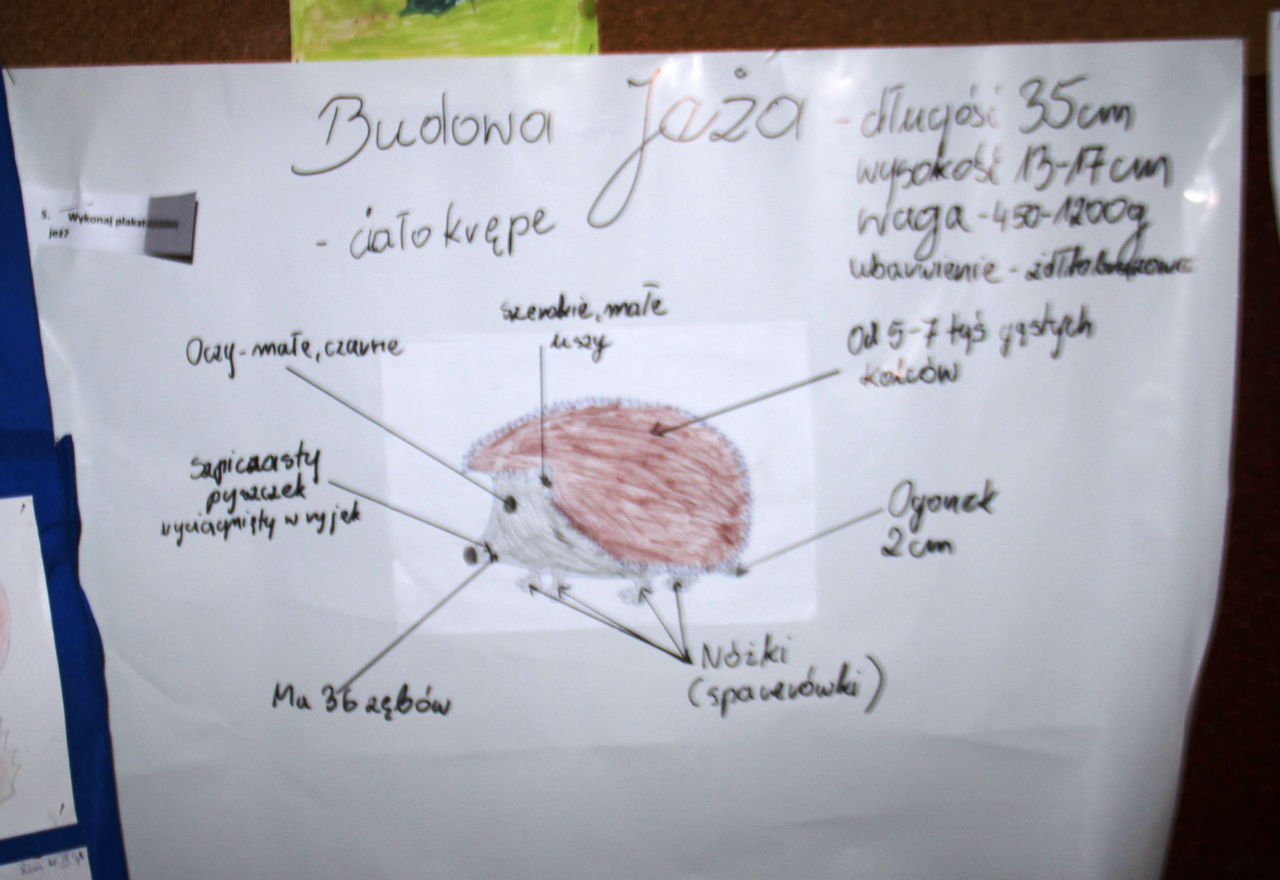 Budowa Jeża
- długość 35cm
wysokość 13-17cm
waga - 450-1200g
ubarwienie -
- ciało krępe
5. Wykonaj plakat
jeż?
szerokie, małe
uszy
Oczy - małe, czarne
Od 5-7 tyś gęstych
kolców
szpiczasty
pyszczek
wyciągnięty w ryjek
Ogonek
2cm
Nóżki
(spacerówki)
Ma 36 zębów